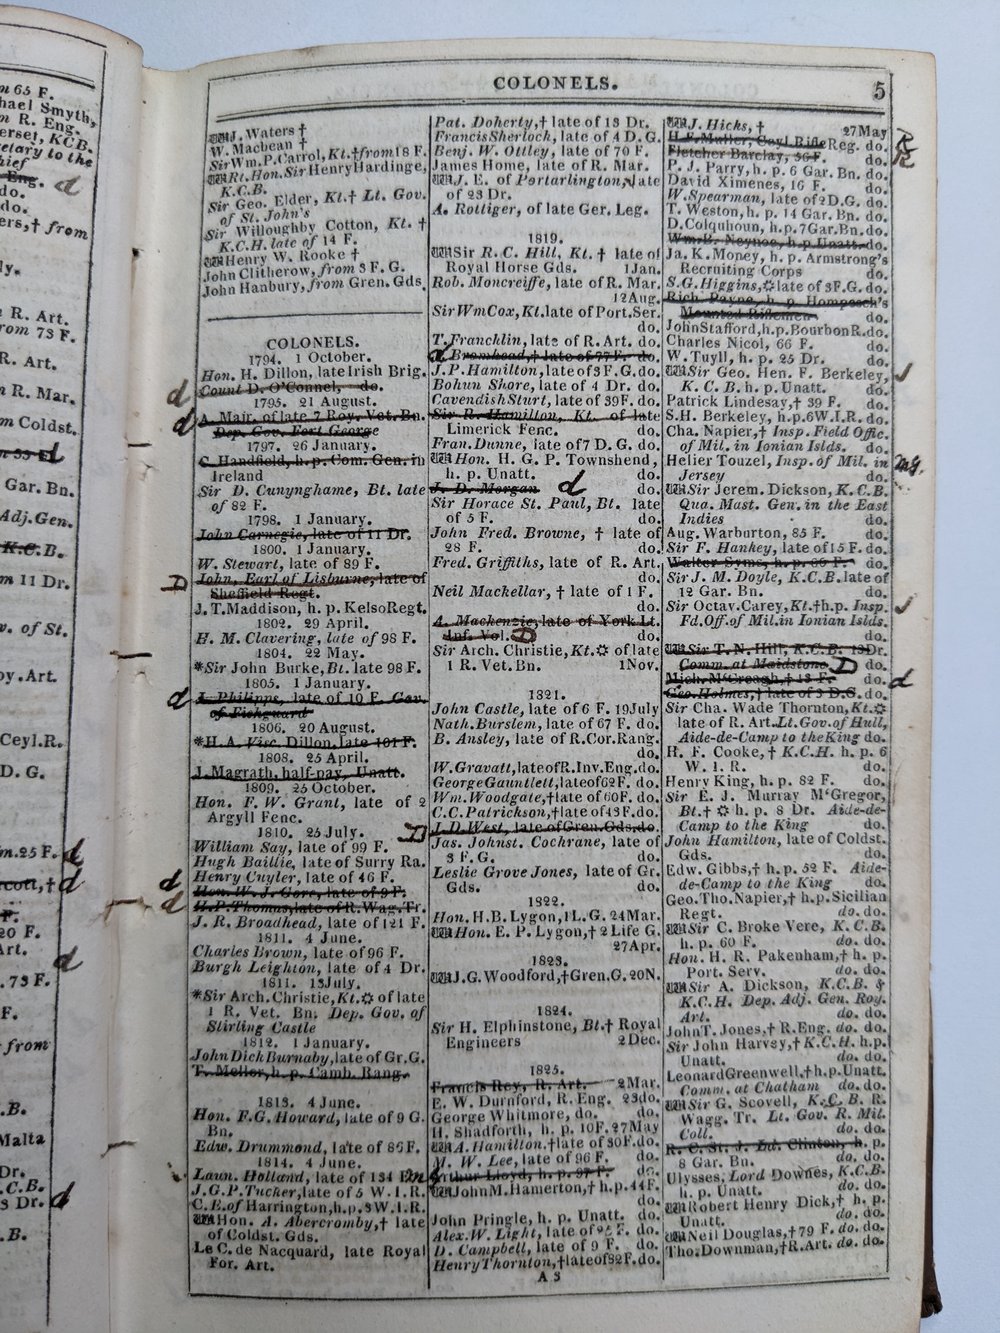 m 65 F.
hael Smyth,
m R. Eng.
erset, KCB.
retary to the
hief
Eng. d
do.
do.
ers,† from
ly.
n R. Art.
rom 73 F.
R. Art.
n R. Mar.
m Coldst.
d
Gar. Bn.
Adj.Gen.
K.C.B.
m 11 Dr.
v. of St.
oy. Art.
Ceyl.R.
D. G.
m.25 F. d
rcott,† d
F.
20 F.
Art.
d
.73 F.
F.
from
.B.
Malta
Dr.
.C.B.
s Dr. d
.B.
COLONELS.
5
J. Waters †
W. Macbean †
Sir Wm.P.Carrol, Kt.†from 18 F.
Rt.Hon.Sir Henry Hardinge,
K.C.B.
Sir Geo. Elder, Kt.† Lt. Gov.
of St. John's
Sir Willoughby Cotton, Kt. †
K.C.H. late of 14 F.
Henry W. Rooke †
John Clitherow, from 3 F. G.
John Hanbury, from Gren. Gds.
COLONELS.
1794. 1 October.
Hon. H. Dillon, late Irish Brig.
d Count D. O'Connel, do.
1795. 21 August.
d A. Mair, of late 7 Roy. Vet. Bn.
Dep. Gov. Fort George
1797. 26 January.
C. Handfield, h. p. Com. Gen. in
Ireland
Sir D. Cunynghame, Bt. late
of 82 F.
1798. 1 January.
John Carnegie, late of 11 Dr.
1800. 1 January.
W. Stewart, late of 89 F.
D John, Earl of Lisburne, late of
Sheffield Regt.
J. T. Maddison, h. p. Kelso Regt.
1802. 29 April.
H. M. Clavering, late of 98 F.
1804. 22 May.
*Sir John Burke, Bt. late 98 F.
1805. 1 January.
d J. Philipps, late of 10 F. Gov.
of Fishguard
1806. 20 August.
*H.A. Visc. Dillon, late 101 F.
1808. 25 April.
J. Magrath, half-pay, Unatt.
1809. 25 October.
Hon. F. W. Grant, late of 2
Argyll Fenc.
1810. 25 July.
William Say, late of 99 F.
Hugh Baillie, late of Surry Ra.
Henry Cuyler, late of 46 F.
d Hon. W. J. Gore, late of 9 F.
d H. P. Thomas, late of R. Wag. Tr.
J. R. Broadhead, late of 121 F.
1811. 4 June.
Charles Brown, late of 96 F.
Burgh Leighton, late of 4 Dr.
1811. 13 July.
*Sir Arch. Christie, Kt.✡ of late
1 R. Vet. Bn. Dep. Gov. of
Stirling Castle
1812. 1 January.
John Dick Burnaby, late of Gr.G.
T. Mellor, h. p. Camb. Rang.
1813. 4 June.
Hon. F.G. Howard, late of 9 G.
Bn.
Edw. Drummond, late of 86 F.
1814. 4 June.
Laun. Holland, late of 134 F.
J.G.P. Tucker, late of 5 W. I. R.
C. E. of Harrington, h.p. 3 W.I.R.
Hon. A. Abercromby,† late
of Coldst. Gds.
Le C. de Nacquard, late Royal
For. Art.
Pat. Doherty,† late of 13 Dr.
Francis Sherloch, late of 4 D. G.
Benj. W. Ottley, late of 70 F.
James Home, late of R. Mar.
J. E. of Portarlington, late
of 23 Dr.
A. Rottiger, of late Ger. Leg.
1819.
Sir R. C. Hill, Kt. † late of
Royal Horse Gds. 1 Jan.
Rob. Moncreiffe, late of R. Mar.
12 Aug.
Sir Wm Cox, Kt. late of Port. Ser.
do.
T. Franchlin, late of R. Art. do.
d Bromhead,† late of 77 F. do.
J. P. Hamilton, late of 3 F.G. do.
Bohun Shore, late of 4 Dr. do.
Cavendish Sturt, late of 39 F. do.
Sir R. Hamilton, Kt. of late
Limerick Fenc. do.
Fran. Dunne, late of 7 D. G. do.
Hon. H. G. P. Townshend,
h. p. Unatt. do.
J. D. Morgan d do.
Sir Horace St. Paul, Bt. late
of 5 F. do.
John Fred. Browne, † late of
28 F. do.
Fred. Griffiths, late of R. Art.
do.
Neil Mackellar, † late of 1 F.
do.
A. Mackenzie, late of York Lt.
Inf. Vol. D do.
Sir Arch. Christie, Kt.✡ of late
1 R. Vet. Bn. 1 Nov.
1821.
John Castle, late of 6 F. 19 July
Nath. Burslem, late of 67 F. do.
B. Ansley, late of R. Cor. Rang.
do.
W. Gravatt, late of R. Inv. Eng. do.
George Gauntlett, late of 62 F. do.
Wm. Woodgate,† late of 60 F. do.
C. C. Patrickson,† late of 43 F. do.
D J. D. West, late of Gren. Gds. do.
Jas. Johnst. Cochrane, late of
3 F. G. do.
Leslie Grove Jones, late of Gr.
Gds. do.
1822.
Hon. H.B. Lygon, 1 L. G. 24 Mar.
Hon. E. P. Lygon,† 2 Life G.
27 Apr.
1823.
J.G. Woodford,† Gren. G. 20 N.
1824.
Sir H. Elphinstone, Bt.† Royal
Engineers 2 Dec.
1825.
Francis Rey, R. Art. 2 Mar.
E. W. Durnford, R. Eng. 23 do.
George Whitmore, do. do.
H. Shadforth, h. p. 10 F. 27 May
A. Hamilton,† late of 30 F. do.
M. W. Lee, late of 96 F. do.
Arthur Lloyd, h. p. 37 F. do.
John M. Hamerton,† h. p. 44 F.
do.
John Pringle, h. p. Unatt. do.
Alex. W. Light, late of 25 F. do.
D. Campbell, late of 9 F. do.
Henry Thornton,† late of 82 F. do.
A 3
J. Hicks, † 27 May
H. F. Muller, Ceyl. Rifle Reg. do.
Fletcher Barclay, 56 F. do.
P. J. Parry, h. p. 6 Gar. Bn. do.
David Ximenes, 16 F. do.
W. Spearman, late of 2 D. G. do.
T. Weston, h. p. 14 Gar. Bn. do.
D. Colquhoun, h. p. 7 Gar. Bn. do.
Wm. B. Neynoe, h. p. Unatt. do.
Ja. K. Money, h. p. Armstrong's
Recruiting Corps do.
S. G. Higgins,✡ late of 3 F.G. do.
Rich. Payne, h. p. Hompesch's
Mounted Riflemen do.
John Stafford, h.p. Bourbon R. do.
Charles Nicol, 66 F. do.
W. Tuyll, h. p. 25 Dr. do.
Sir Geo. Hen. F. Berkeley,
K. C. B. h. p. Unatt. do.
Patrick Lindesay,† 39 F. do.
S.H. Berkeley, h.p. 6 W.I.R. do.
Cha. Napier,† Insp. Field Offic.
of Mil. in Ionian Islds. do.
Helier Touzel, Insp. of Mil. in
Jersey do.
Sir Jerem. Dickson, K. C. B.
Qua. Mast. Gen. in the East
Indies do.
Aug. Warburton, 85 F. do.
Sir F. Hankey, late of 15 F. do.
Walter Syms, h. p. 69 F. do.
Sir J. M. Doyle, K.C.B. late of
12 Gar. Bn. do.
Sir Octav. Carey, Kt.† h.p. Insp.
Fd. Off. of Mil. in Ionian Islds.
do.
Sir T. N. Hill, K.C.B. 13 Dr.
Comm. at Maidstone D do.
Mich. McCreagh,† 13 F. do. d
Geo. Holmes,† late of 3 D.G. do.
Sir Cha. Wade Thornton, Kt.✡
late of R. Art. Lt. Gov. of Hull,
Aide-de-Camp to the King do.
R. F. Cooke,† K.C.H. h. p. 6
W. I. R. do.
Henry King, h. p. 82 F. do.
Sir E. J. Murray M'Gregor,
Bt.† ✡ h. p. 8 Dr. Aide-de-
Camp to the King do.
John Hamilton, late of Coldst.
Gds. do.
Edw. Gibbs,† h. p. 52 F. Aide-
de-Camp to the King do.
Geo. Tho. Napier,† h.p. Sicilian
Regt. do. do.
Sir C. Broke Vere, K.C.B.
h. p. 60 F. do. do.
Hon. H. R. Pakenham,† h. p.
Port. Serv. do. do.
Sir A. Dickson, K.C.B. &
K.C.H. Dep. Adj. Gen. Roy.
Art. do. do.
John T. Jones,† R. Eng. do. do.
Sir John Harvey,† K.C.H. h.p.
Unatt. do. do.
Leonard Greenwell,† h.p. Unatt.
Comm. at Chatham do. do.
Sir G. Scovell, K.C.B. R.
Wagg. Tr. Lt. Gov. R. Mil.
Coll. do. do.
R. C. St. J. Ld. Clinton, h. p.
8 Gar. Bn. do. do.
Ulysses, Lord Downes, K.C.B.
h. p. Unatt. do. do.
Robert Henry Dick,† h. p.
Unatt. do. do.
Neil Douglas,† 79 F. do. do.
Tho. Downman,† R. Art. do. do.